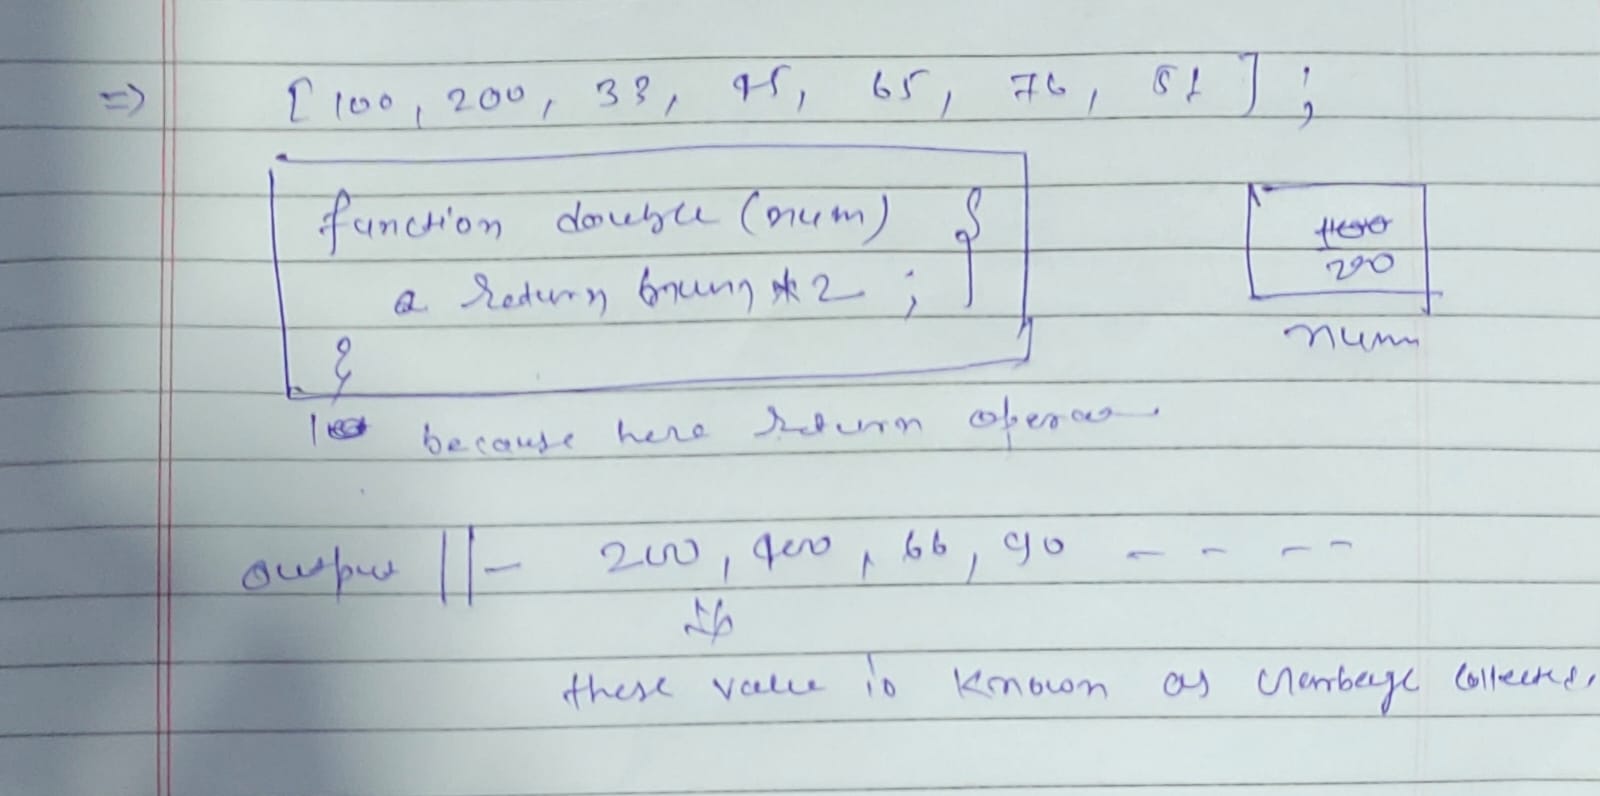 => [ 100, 200, 33, 45, 65, 76, 51 ] ;
function double (num) {
return num * 2 ;
}
200
num
because here return
output || - 200, 400, 66, 90 - - - -
these value is known as Garbage Collected.